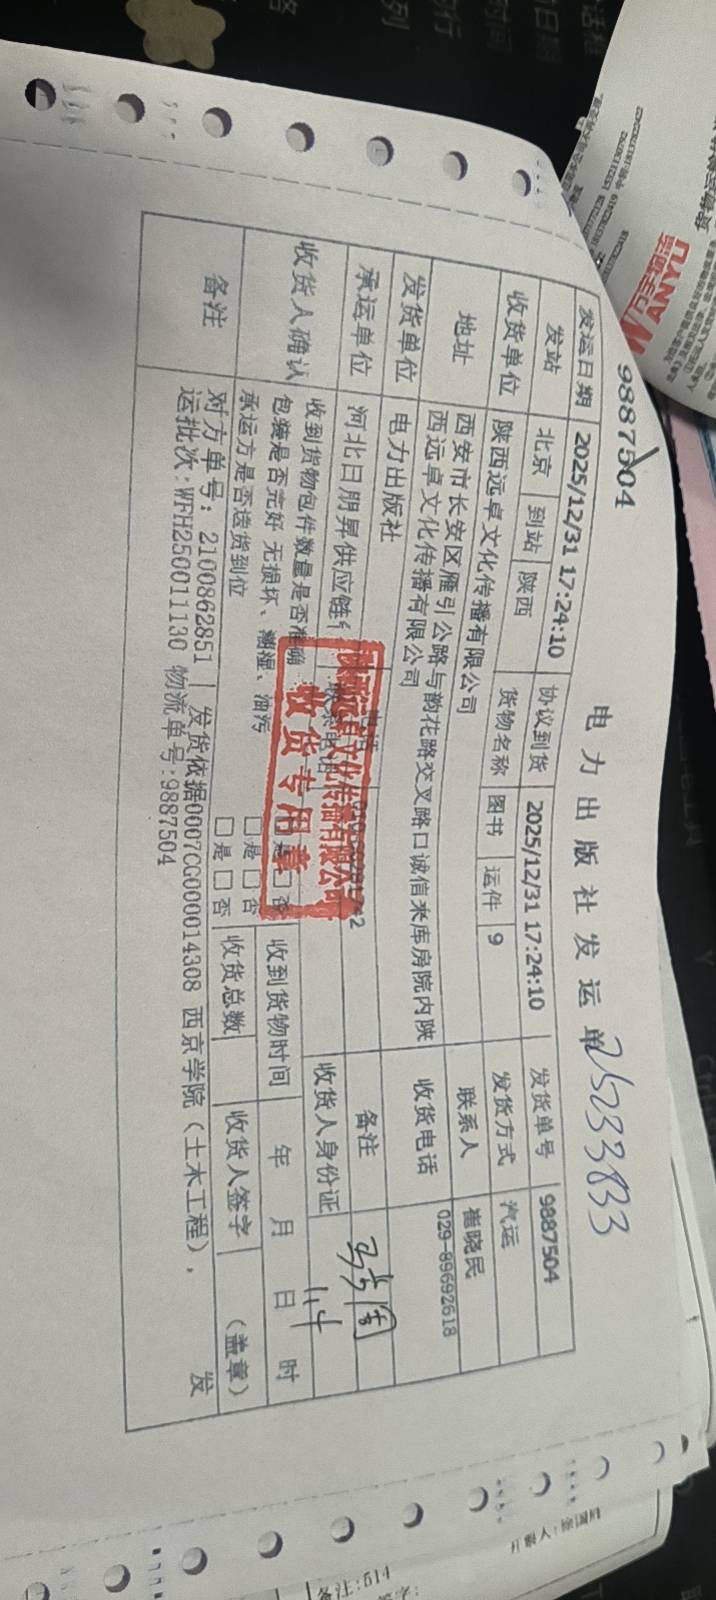 9887504
电力出版社发运单
25233833
发运日期 2025/12/31 17:24:10 协议到货 2025/12/31 17:24:10 发货单号 9887504
发站 北京 到站 陕西 货物名称 图书 运件 9 发货方式 汽运
收货单位 陕西远卓文化传播有限公司 联系人 崔晓民
地址 西安市长安区雁引公路与韵花路交叉路口诚信米库房院内陕
西远卓文化传播有限公司 收货电话 029-89692618
发货单位 电力出版社 电话 备注
承运单位 河北日朋昇供应链 联系电话 收货人身份证
收货人确认 收到货物包件数量是否准确 是 □ 否 收到货物时间 年 月 日 时
包装是否完好 无损坏、潮湿、油污 □ 是 □ 否
承运方是否送货到位 □ 是 □ 否 收货总数 收货人签字 (盖章)
备注 对方单号: 2100862851 | 发货依据0007CG000014308 西京学院(土木工程), 发
运批次:WFH250011130 物流单号:9887504
陕西远卓文化传播有限公司
收货专用章
WANYU
开票人:徐国
备注:614